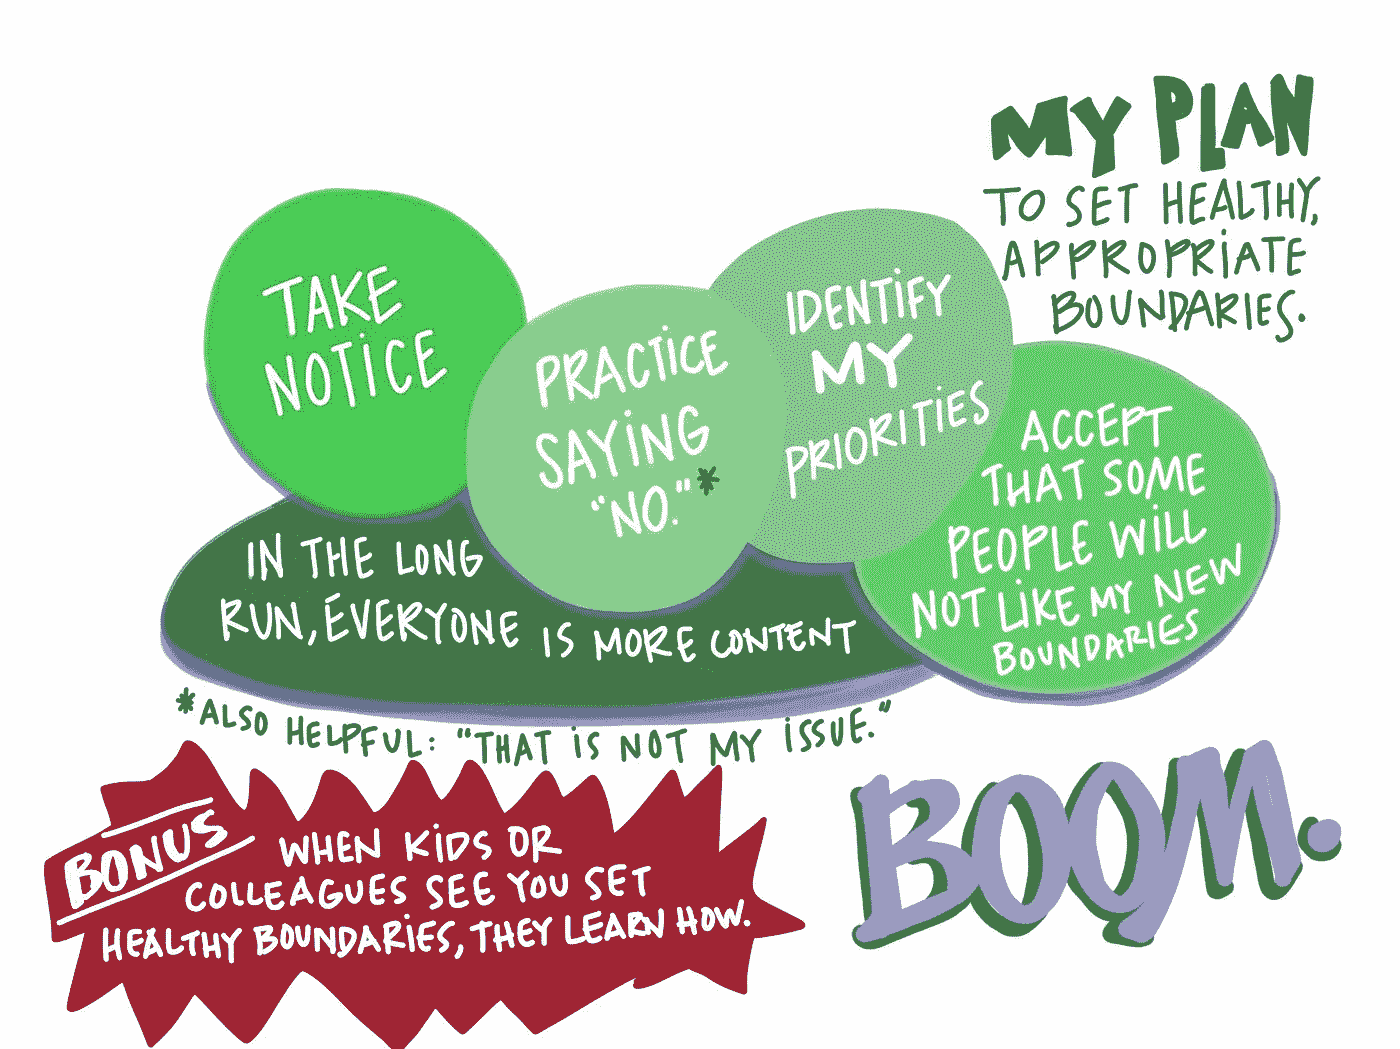 MY PLAN
TO SET HEALTHY,
APPROPRIATE
BOUNDARIES.
TAKE
NOTICE
PRACTICE
SAYING
"NO."*
IDENTIFY
MY
PRIORITIES
ACCEPT
THAT SOME
PEOPLE WILL
NOT LIKE MY NEW
BOUNDARIES
IN THE LONG
RUN, EVERYONE IS MORE CONTENT
*ALSO HELPFUL: "THAT IS NOT MY ISSUE."
BONUS
WHEN KIDS OR
COLLEAGUES SEE YOU SET
HEALTHY BOUNDARIES, THEY LEARN HOW.
BOOM.